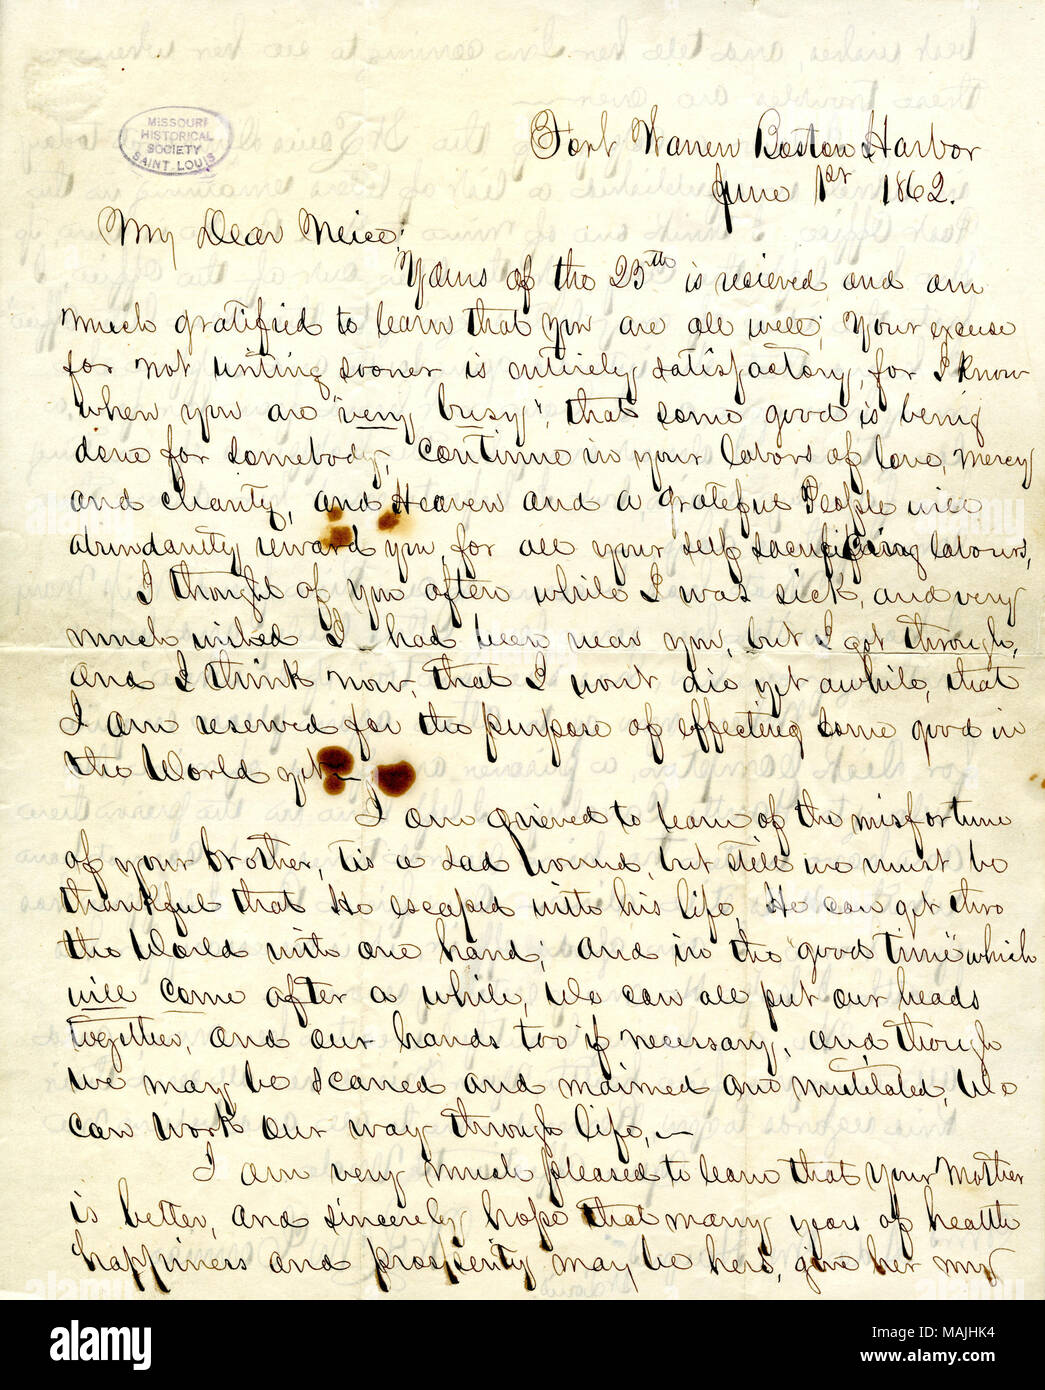 MISSOURI
HISTORICAL
SOCIETY
SAINT LOUIS
Fort Warren Boston Harbor
June 1st 1862.
My Dear Neice;
Yours of the 25th is recieved and am
much gratified to learn that you are all well; Your excuse
for not writing sooner is entirely satisfactory, for I know
when you are "very busy", that some good is being
done for somebody, continue in your labors of love, mercy
and charity, and Heaven and a grateful People will
abundantly reward you for all your self sacrificing labours,
I thought of you often while I was sick, and very
much wished I had been near you, but I got through,
and I think now, that I wont die yet awhile, that
I am reserved for the purpose of effecting some good in
the World yet—
I am grieved to learn of the misfortune
of your brother, tis a sad wound, but still we must be
thankful that He escaped with his life, He can get thro
the World with one hand; and in the "good time" which
will come after a while, We can all put our heads
together, and our hands too if necessary, and though
we may be scarred and maimed and mutilated, We
can work our way through life,—
I am very much pleased to learn that your Mother
is better, and sincerely hope that many years of health
happiness and prosperity may be hers, give her my
alamy
Image ID: MAJHK4
www.alamy.com